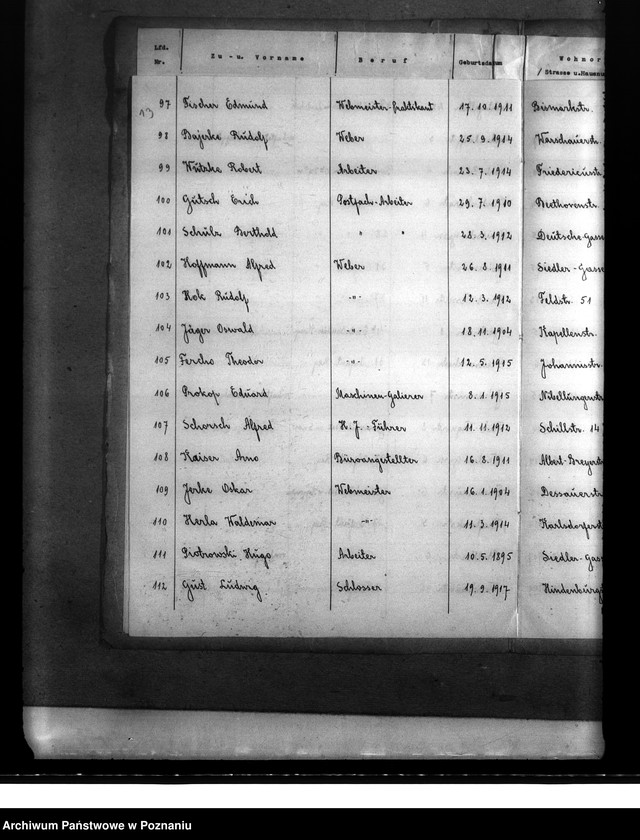 Lfd. Nr. Zu-u. Vorname Beruf Geburtsdatum Wohnor
/ Strasse u.Hausnu
13
97 Fischer Edmund Webmeister-Praktikant 17.10.1911 Bismarkstr.
98 Bajnke Rudolf Weber 25.9.1914 Warschauerstr.
99 Wutzke Robert Arbeiter 23.7.1914 Friedericusstr.
100 Gutsch Erich Postfach-Arbeiter 29.7.1910 Beethovenstr.
101 Schulz Berthold " " 28.3.1912 Deutsche-Gasse
102 Hoffmann Alfred Weber 26.8.1911 Siedler-Gasse
103 Kok Rudolf -"- 12.3.1912 Feldstr. 51
104 Jäger Oswald -"- 18.11.1904 Kapellenstr.
105 Fercho Theodor -"- 12.5.1915 Johannisstr.
106 Prokop Eduard Maschinen- 8.1.1915
107 Schorsch Alfred H.J.-Führer 11.11.1912 Schillstr. 14
108 Kaiser Arno Büroangestellter 16.8.1911 Albert-Breyerst
109 Jerke Oskar Webmeister 16.1.1904 Dessauerstr
110 Herla Waldemar -"- 11.3.1914 Karlsdorferst
111 Piotrowski Hugo Arbeiter 10.5.1895 Siedler-Gass
112 Gust Ludwig Schlosser 19.9.1917 Hindenburg
Archiwum Państwowe w Poznaniu